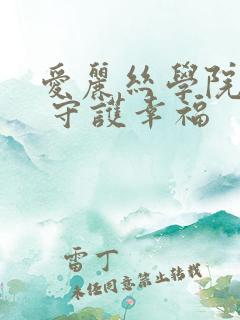 愛麗絲學院
守護幸福
雷丁
未經同意禁止轉載